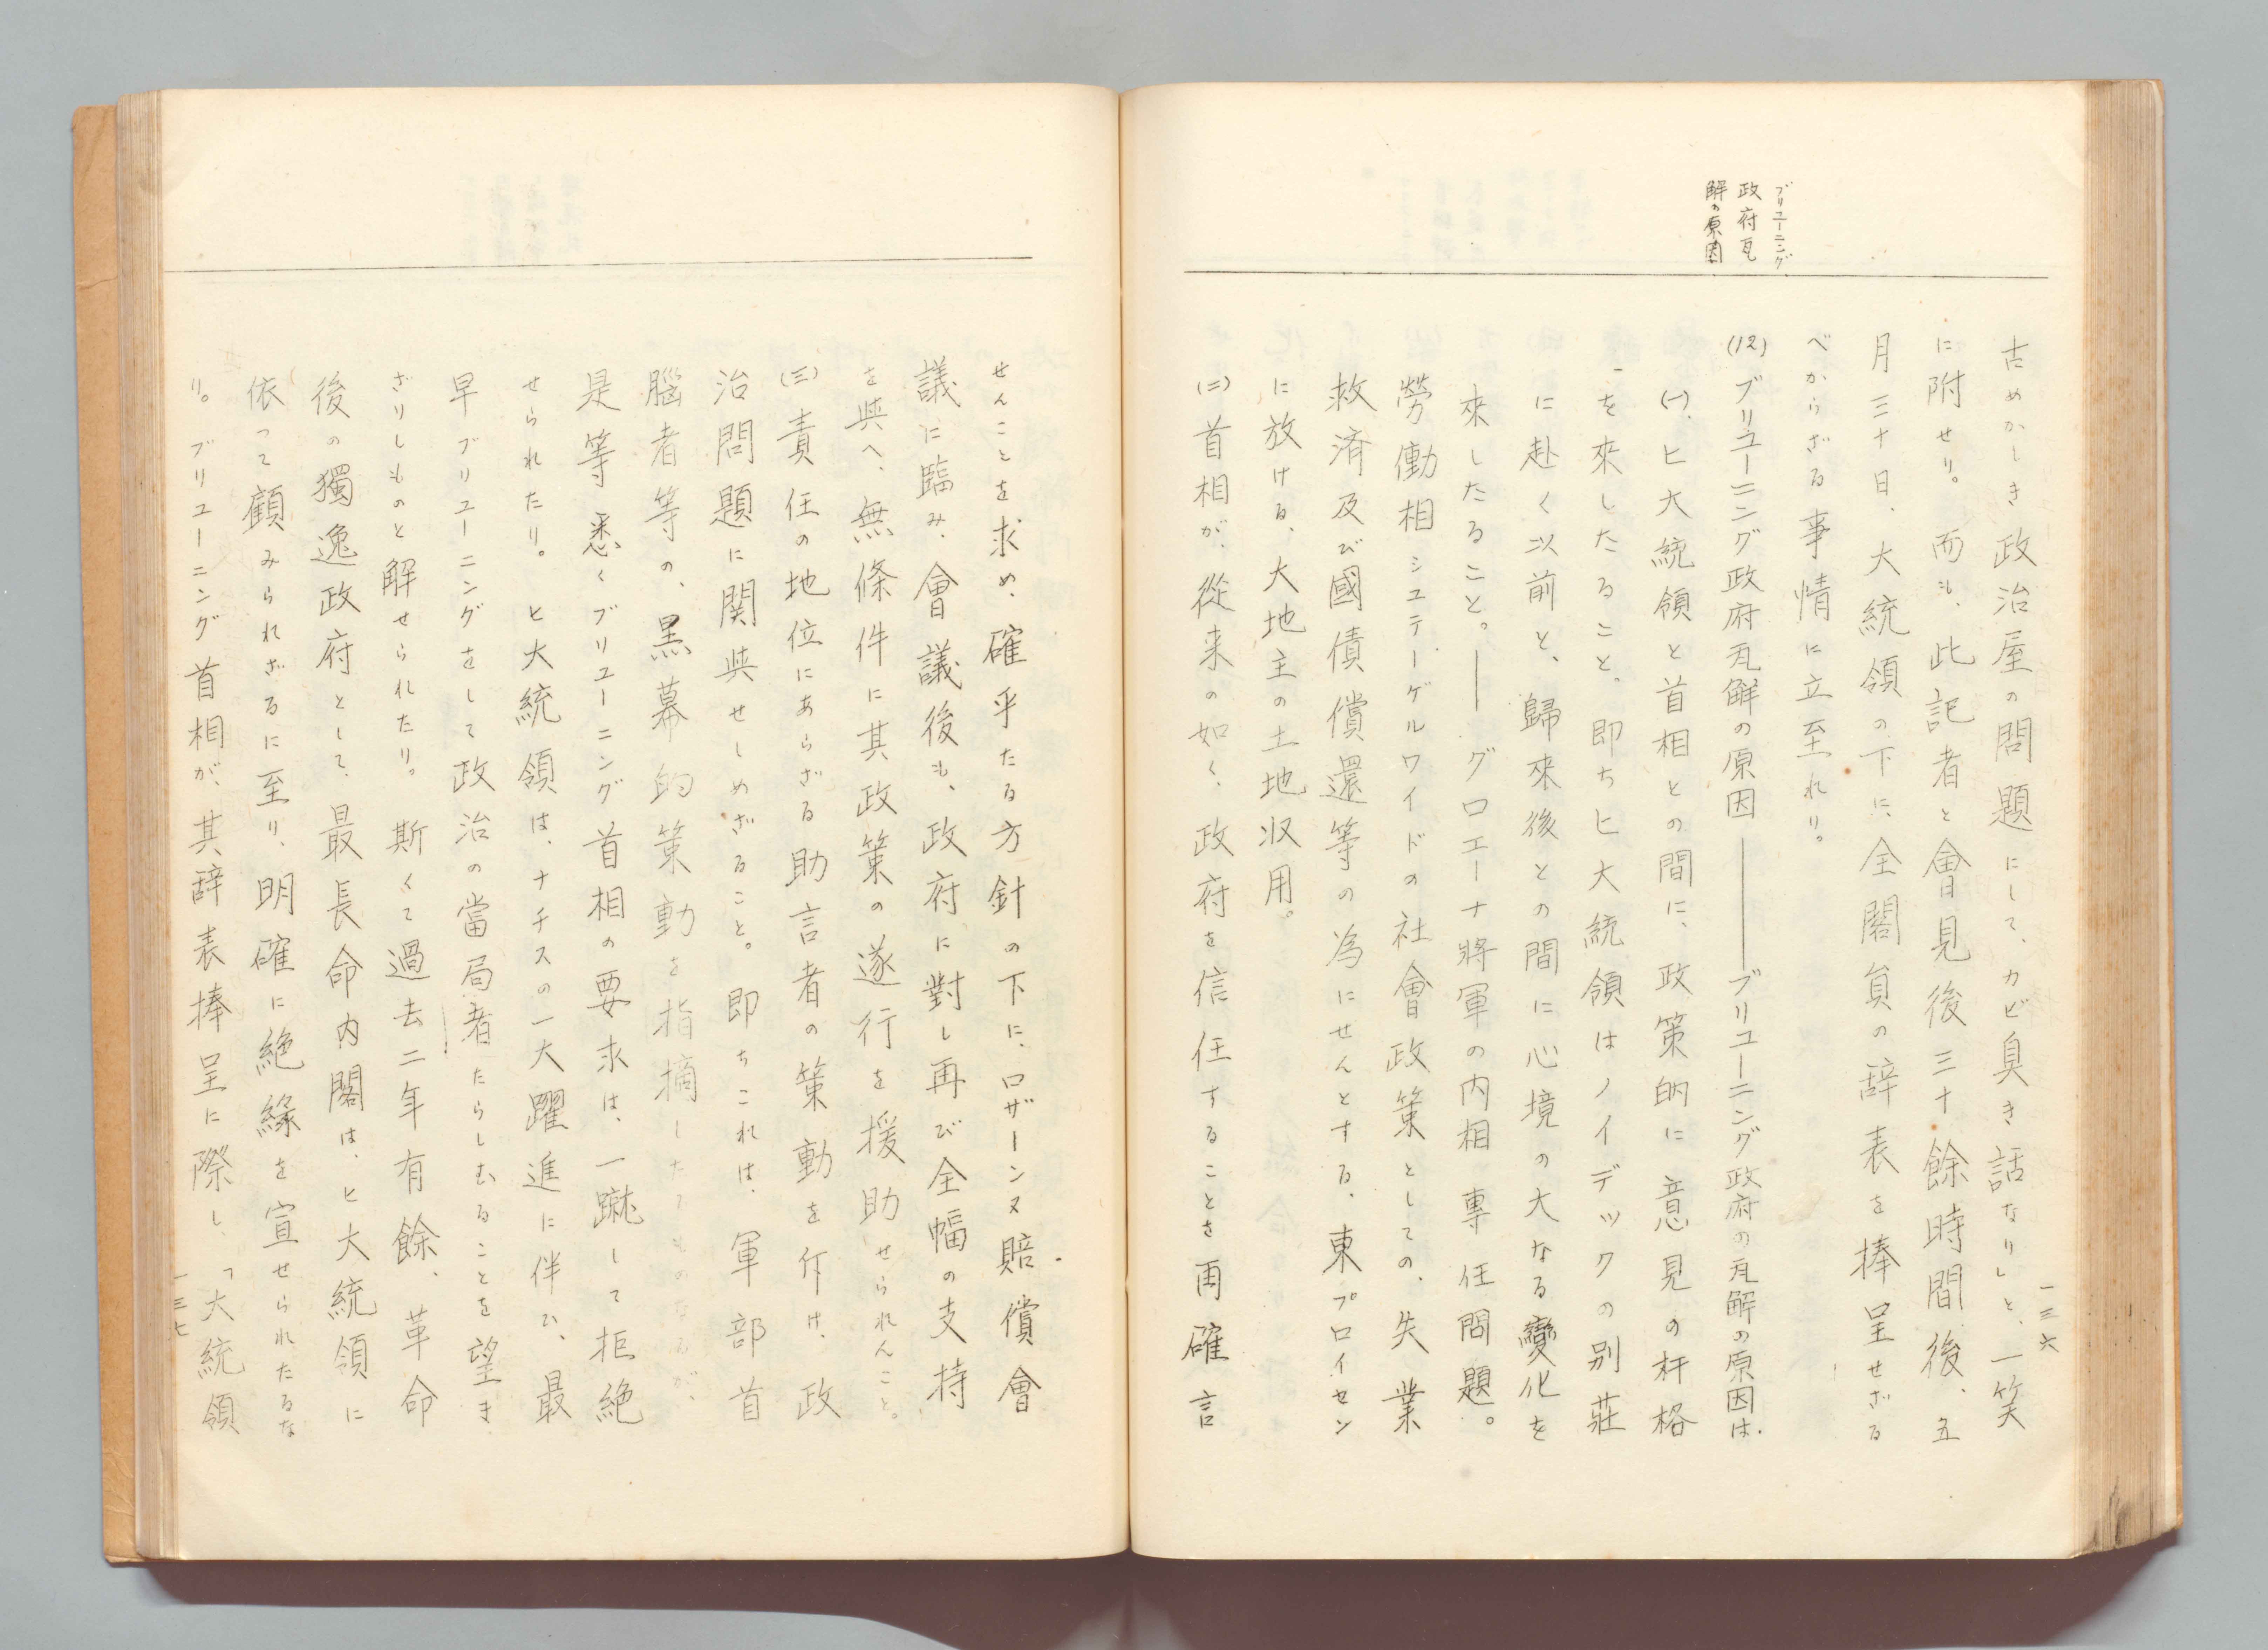 ブリユーニング
政府瓦
解の原因
古めかしき政治屋の問題にして、カビ臭き話なり」と、一笑
に附せり。而も、此記者と會見後三十餘時間後、五
月三十日、大統領の下に、全閣員の辞表を捧呈せざる
べからざる事情に立至れり。
(12)ブリユーニング政府瓦解の原因――ブリユーニング政府の瓦解の原因は、
(一)、ヒ大統領と首相との間に、政策的に意見の扞格
を來したること。即ちヒ大統領はノイデツクの別莊
に赴く以前と、歸來後との間に心境の大なる變化を
來したること。――グロエーナ將軍の内相專任問題。
勞働相シユテーゲルワイドの社會政策としての、失業
救済及び國債償還等の為にせんとする、東プロイセン
に放ける、大地主の土地収用。
(二)首相が、從来の如く、政府を信任することを再確言
一三六
せんことを求め、確乎たる方針の下に、ロザーンヌ賠償會
議に臨み、會議後も、政府に對し再び全幅の支持
を與へ、無條件に其政策の遂行を援助せられんこと。
(三)責任の地位にあらざる助言者の策動を斥け、政
治問題に関與せしめざること。即ちこれは、軍部首
腦者等の、黒幕的策動を指摘したるものなるが、
是等悉くブリユーニング首相の要求は、一蹴して拒絶
せられたり。ヒ大統領は、ナチスの一大躍進に伴ひ、最
早ブリユーニングをして政治の當局者たらしむることを望ま
ざりしものと解せられたり。斯くて過去二年有餘、革命
後の獨逸政府として、最長命内閣は、ヒ大統領に
依って顧みられざるに至り、明確に絶緣を宣せられたるな
り。ブリユーニング首相が、其辞表捧呈に際し、「大統領
一三七